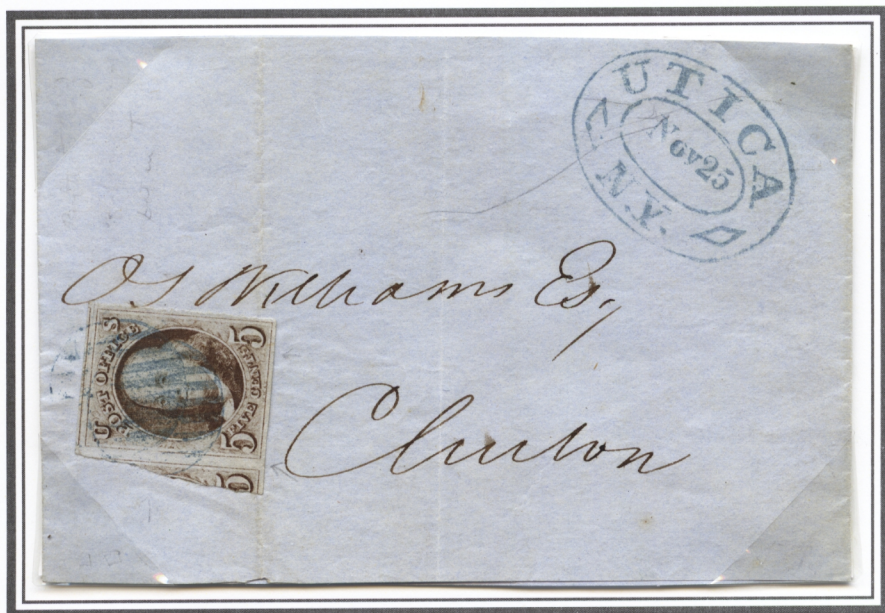 UTICA
Nov 25
N.Y.
O S Williams Esq
Clinton
U S
POST OFFICE
FIVE CENTS
5 5
5